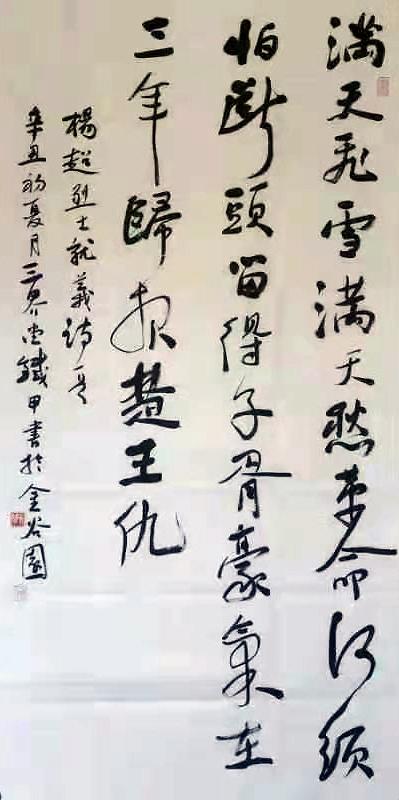 满天飛雪满天愁革命何須
怕斷頭留得子胥豪氣在
三年歸報楚王仇
楊超烈士就義詩一首
辛丑初夏月三界堂鐵甲書於金谷園